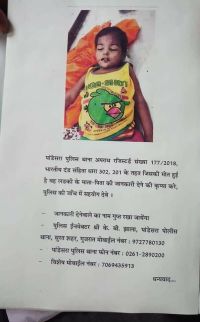 पांडेसरा पुलिस थाना अपराध रजिस्टर्ड संख्या 177/2018,
भारतीय दंड संहिता धारा 302, 201 के तहत जिसकी मौत हुई
है वह लडकी के माता-पिता की जानकारी देने की कृपया करे,
पुलिस की जाँच में सहयोग देवे ।
- जानकारी देनेवाले का नाम गुप्त रखा जायेगा
- पुलिस ईन्सपेक्टर श्री के. बी. झाला, पांडेसरा पोलीस
थाना, सुरत शहर, गुजरात मोबाईल नंबर : 9727780130
- पांडेसरा पुलिस थाना फोन नंबर : 0261-2890200
- विशेष मोबाईल नंबर : 7069435913
धन्यवाद...